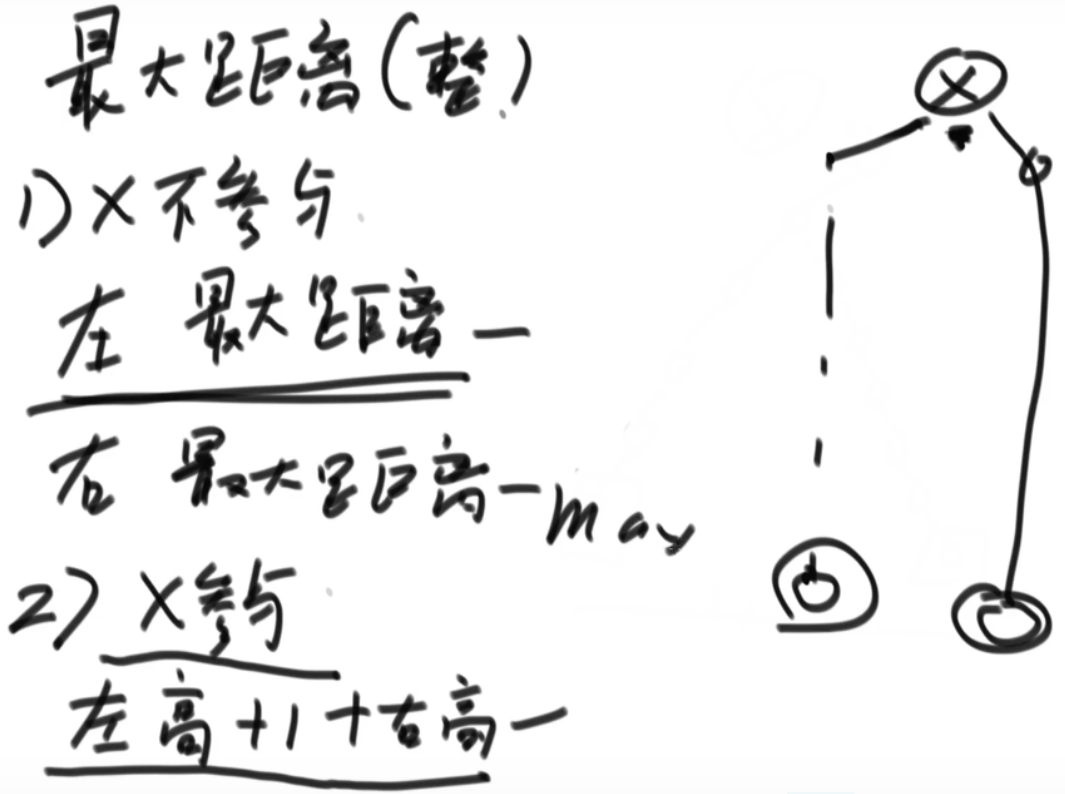 最大距离(整)
1) X不参与
左 最大距离一
右 最大距离一max
2) X参与
左高+1+右高一
X